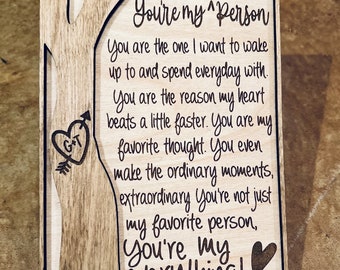 You're my ^ Person
You are the one I want to wake
up to and spend everyday with.
You are the reason my heart
beats a little faster. You are my
favorite thought. You even
make the ordinary moments,
extraordinary You're not just
my favorite person,
You're My
everything!
G+T